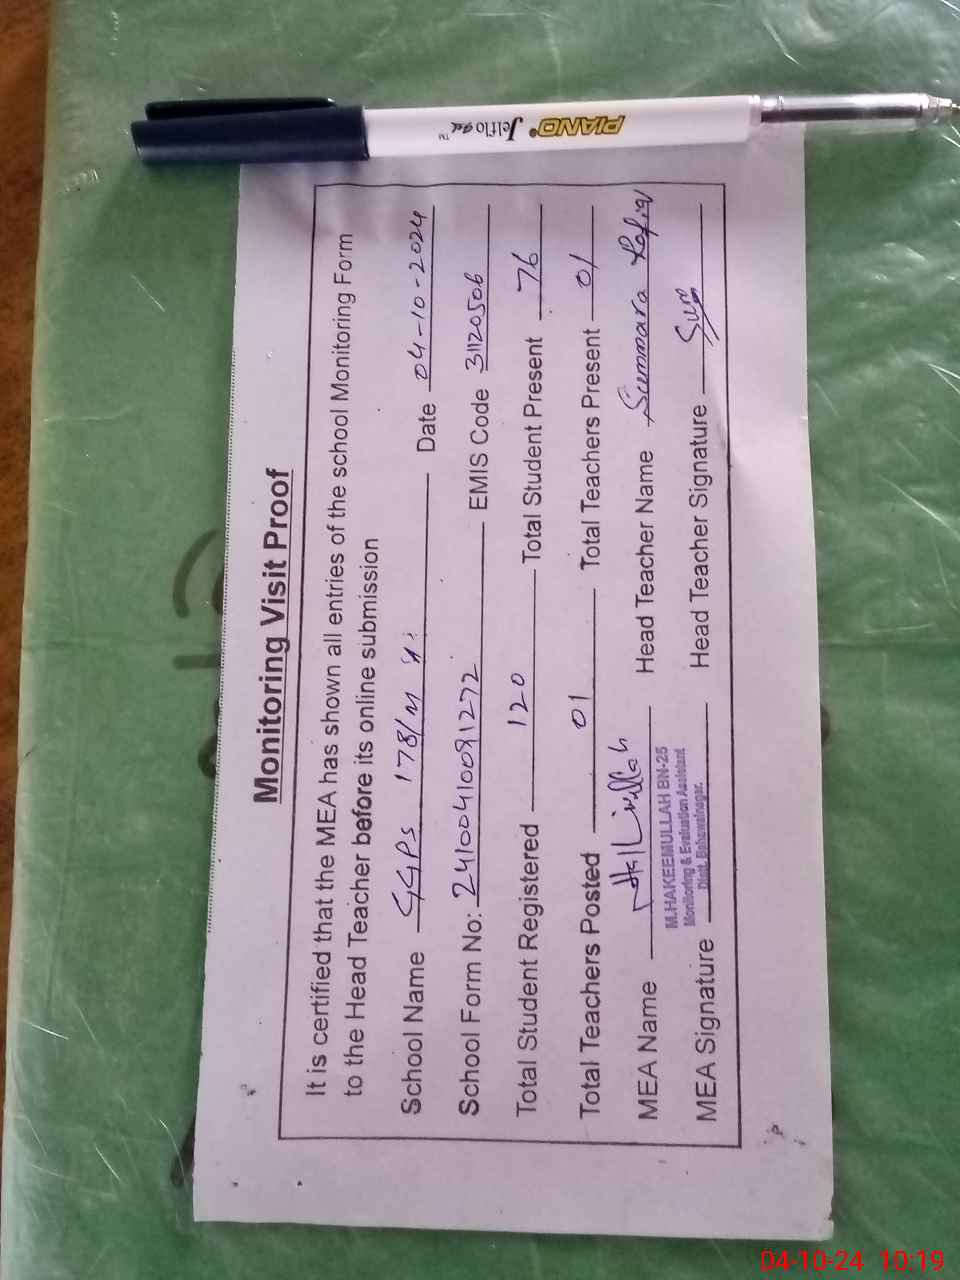 PIANO® Jelflo gel™
Monitoring Visit Proof
It is certified that the MEA has shown all entries of the school Monitoring Form
to the Head Teacher before its online submission
School Name GGPS 178/M Date 04-10-2024
School Form No: 24100410091272 EMIS Code 31120506
Total Student Registered 120 Total Student Present 76
Total Teachers Posted 01 Total Teachers Present 01
MEA Name Head Teacher Name Summara Rafiq
M.HAKEEMULLAH BN-25
Monitoring & Evaluation Assistant
Distt. Bahawalnagar.
MEA Signature Head Teacher Signature Sum
04-10-24 10:19